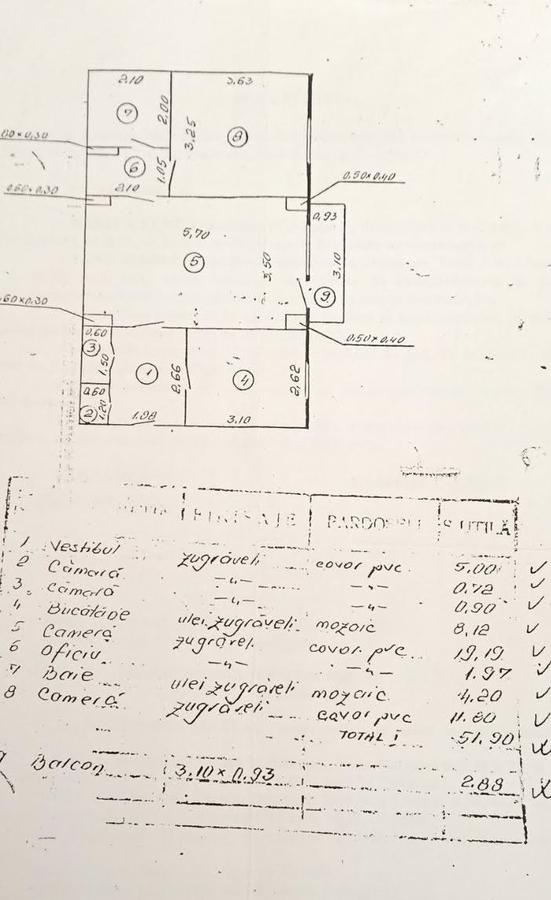 2.10 3.63
7 2.00 8
3.25
6 1.05
2.10
0.50×0.40
0.60×0.30
0,93
5,70
5 3,50 3.10
9
.60×0.30
0.50×0.40
0,60
3 1.50
1 2.66 4 2,62
0.60
2 1.20
1.88 3.10
FINISAJE PARDOSELI S. UTILĂ
1 Vestibul zugrăveli covor pvc 5.00 ✓
2 Cămară —"— —"— 0.72 ✓
3 cămară —"— —"— 0,90 ✓
4 Bucătărie ulei.zugrăveli mozaic 8,12 ✓
5 Cameră zugrăveli covor pvc 19,19 ✓
6 Oficiu —"— —"— 1.97 ✓
7 Baie ulei zugrăveli mozaic 4.20 ✓
8 Cameră zugrăveli covor pvc 11.80 ✓
TOTAL I 51.90
9 Balcon 3.10×0.93 2.88